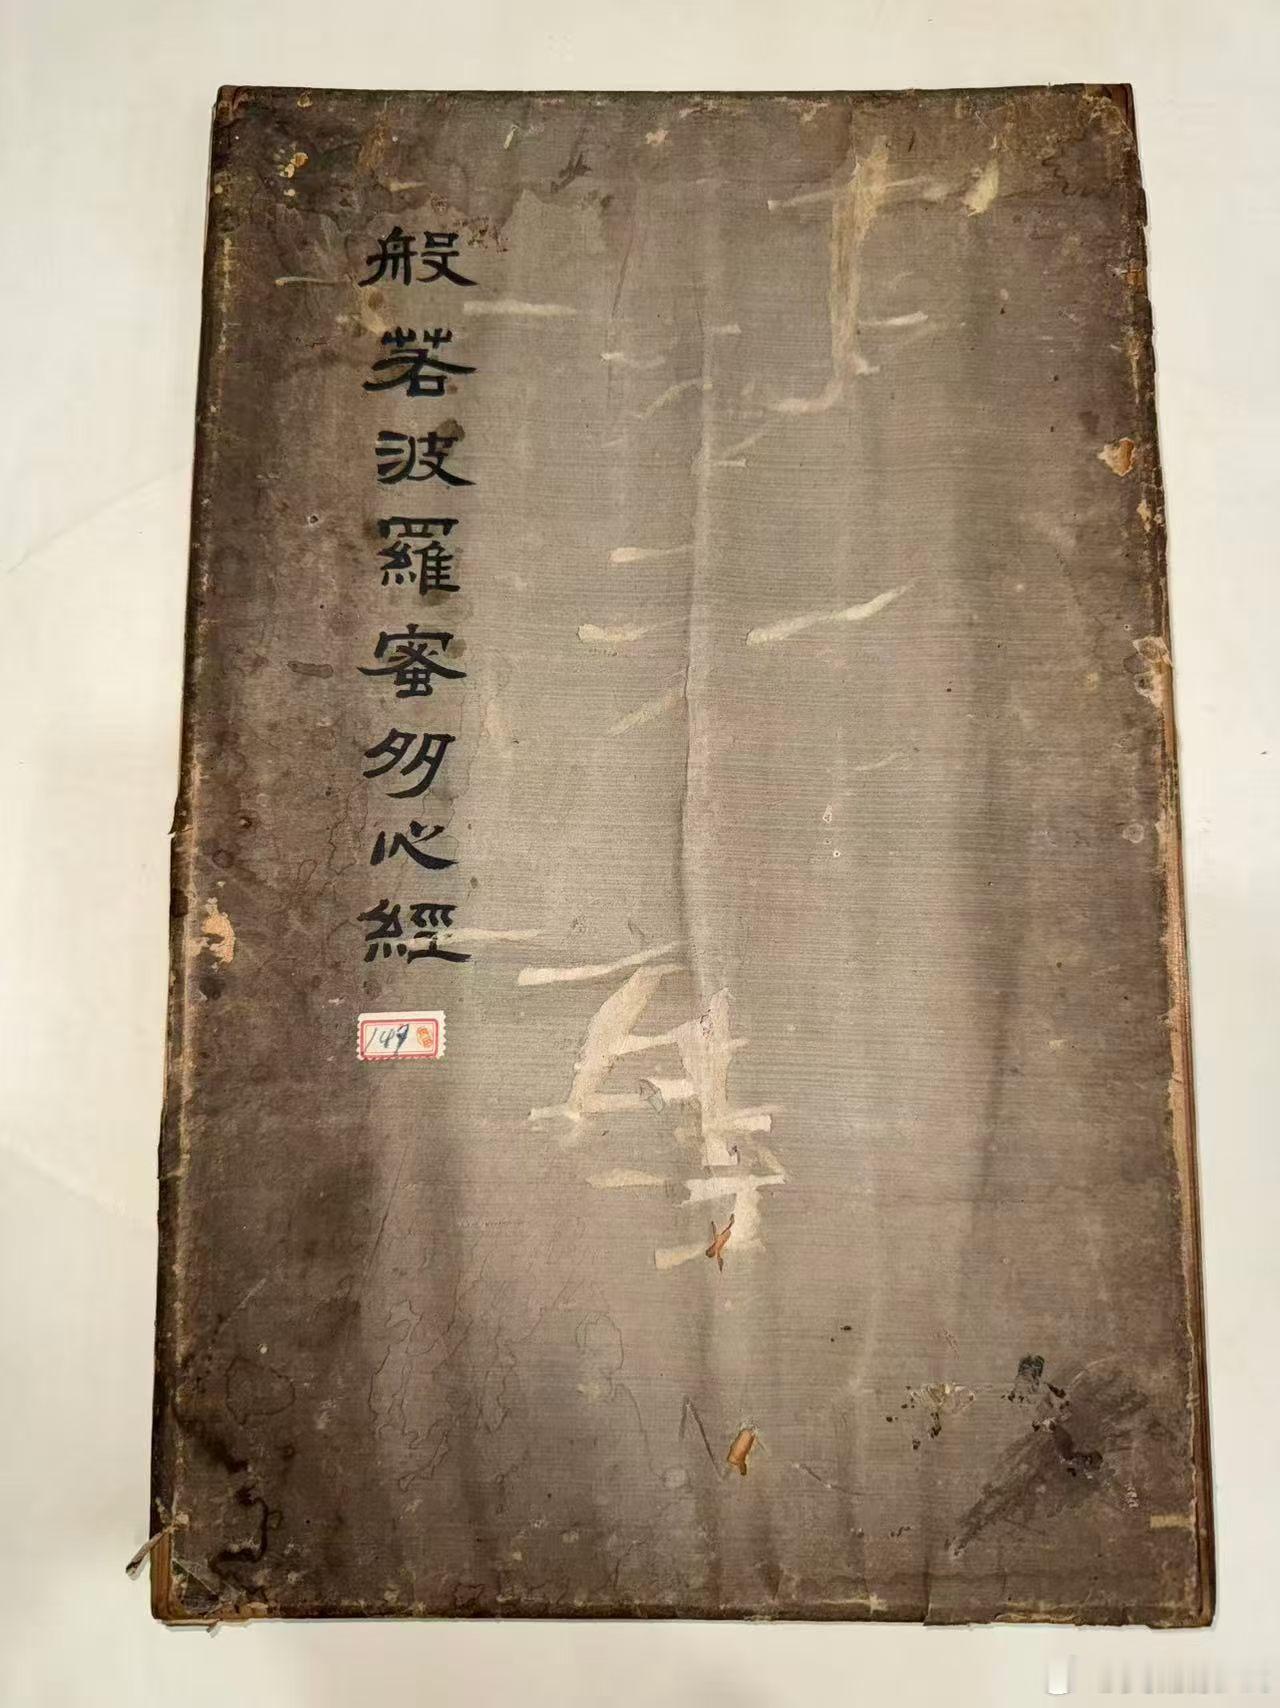 般若波羅蜜多心經
149